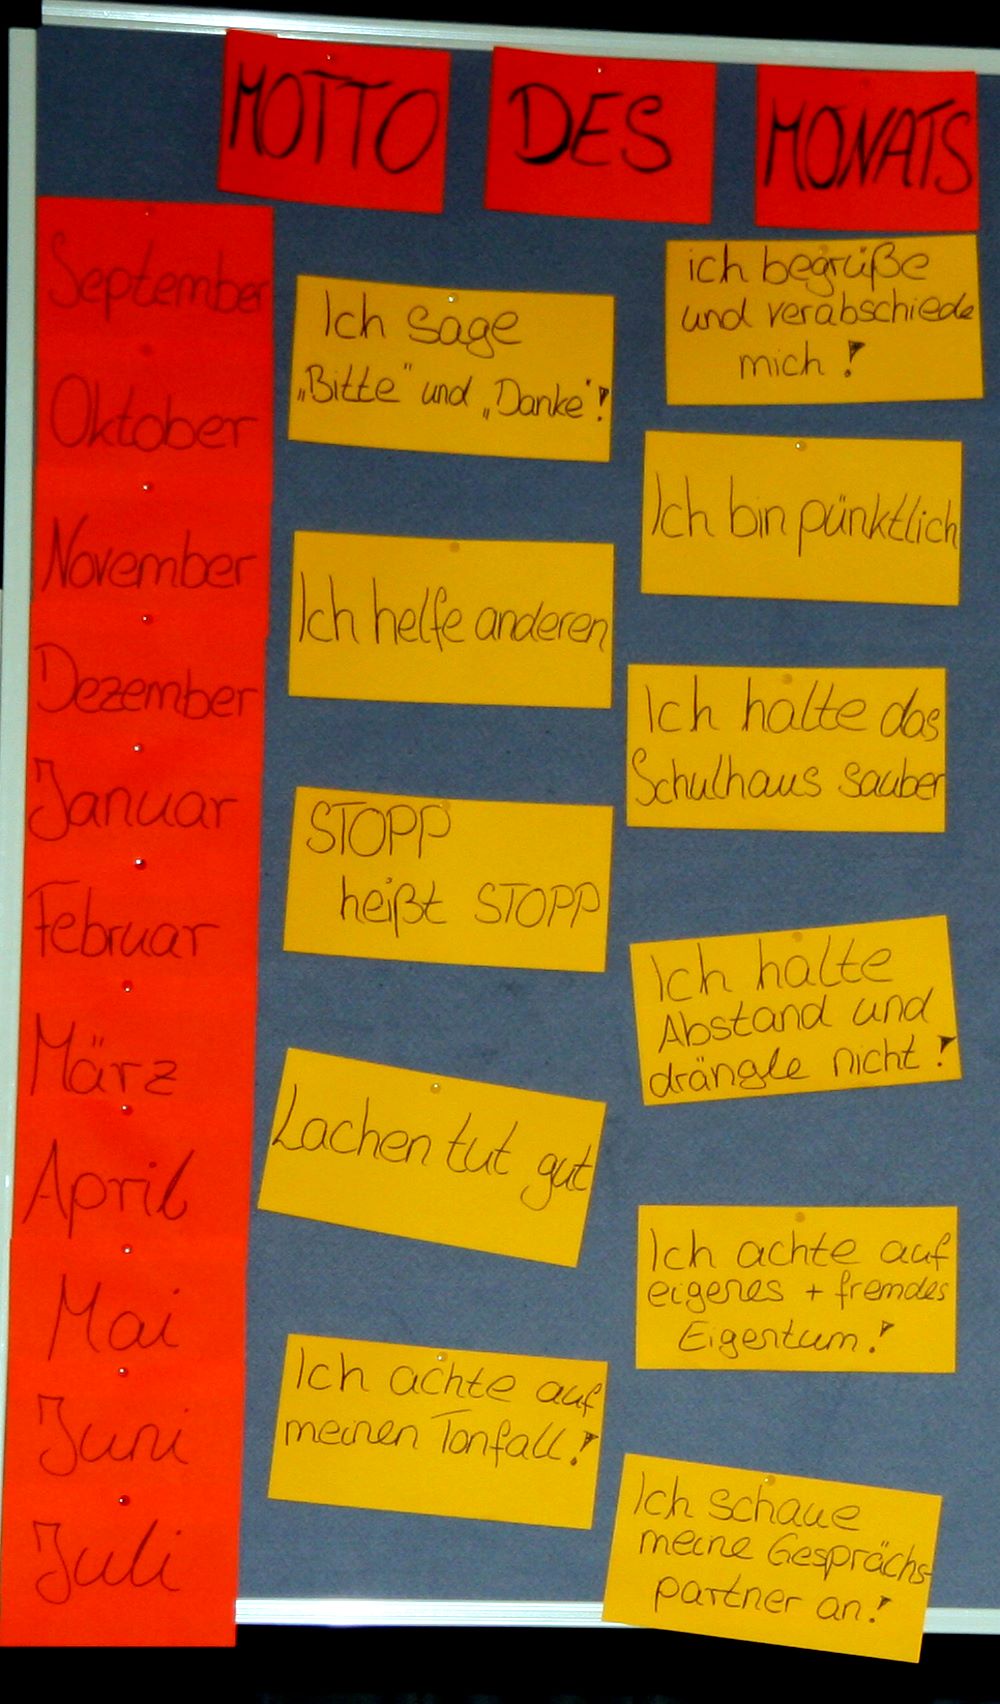 MOTTO DES MONATS
September
Oktober
November
Dezember
Januar
Februar
März
April
Mai
Juni
Juli
Ich sage
„Bitte" und „Danke"!
Ich helfe anderen
STOPP
heißt STOPP
Lachen tut gut
Ich achte auf
meinen Tonfall!
ich begrüße
und verabschiede
mich!
Ich bin pünktlich
Ich halte das
Schulhaus sauber
Ich halte
Abstand und
drängle nicht!
Ich achte auf
eigenes + fremdes
Eigentum!
Ich schaue
meine Gesprächs-
partner an!